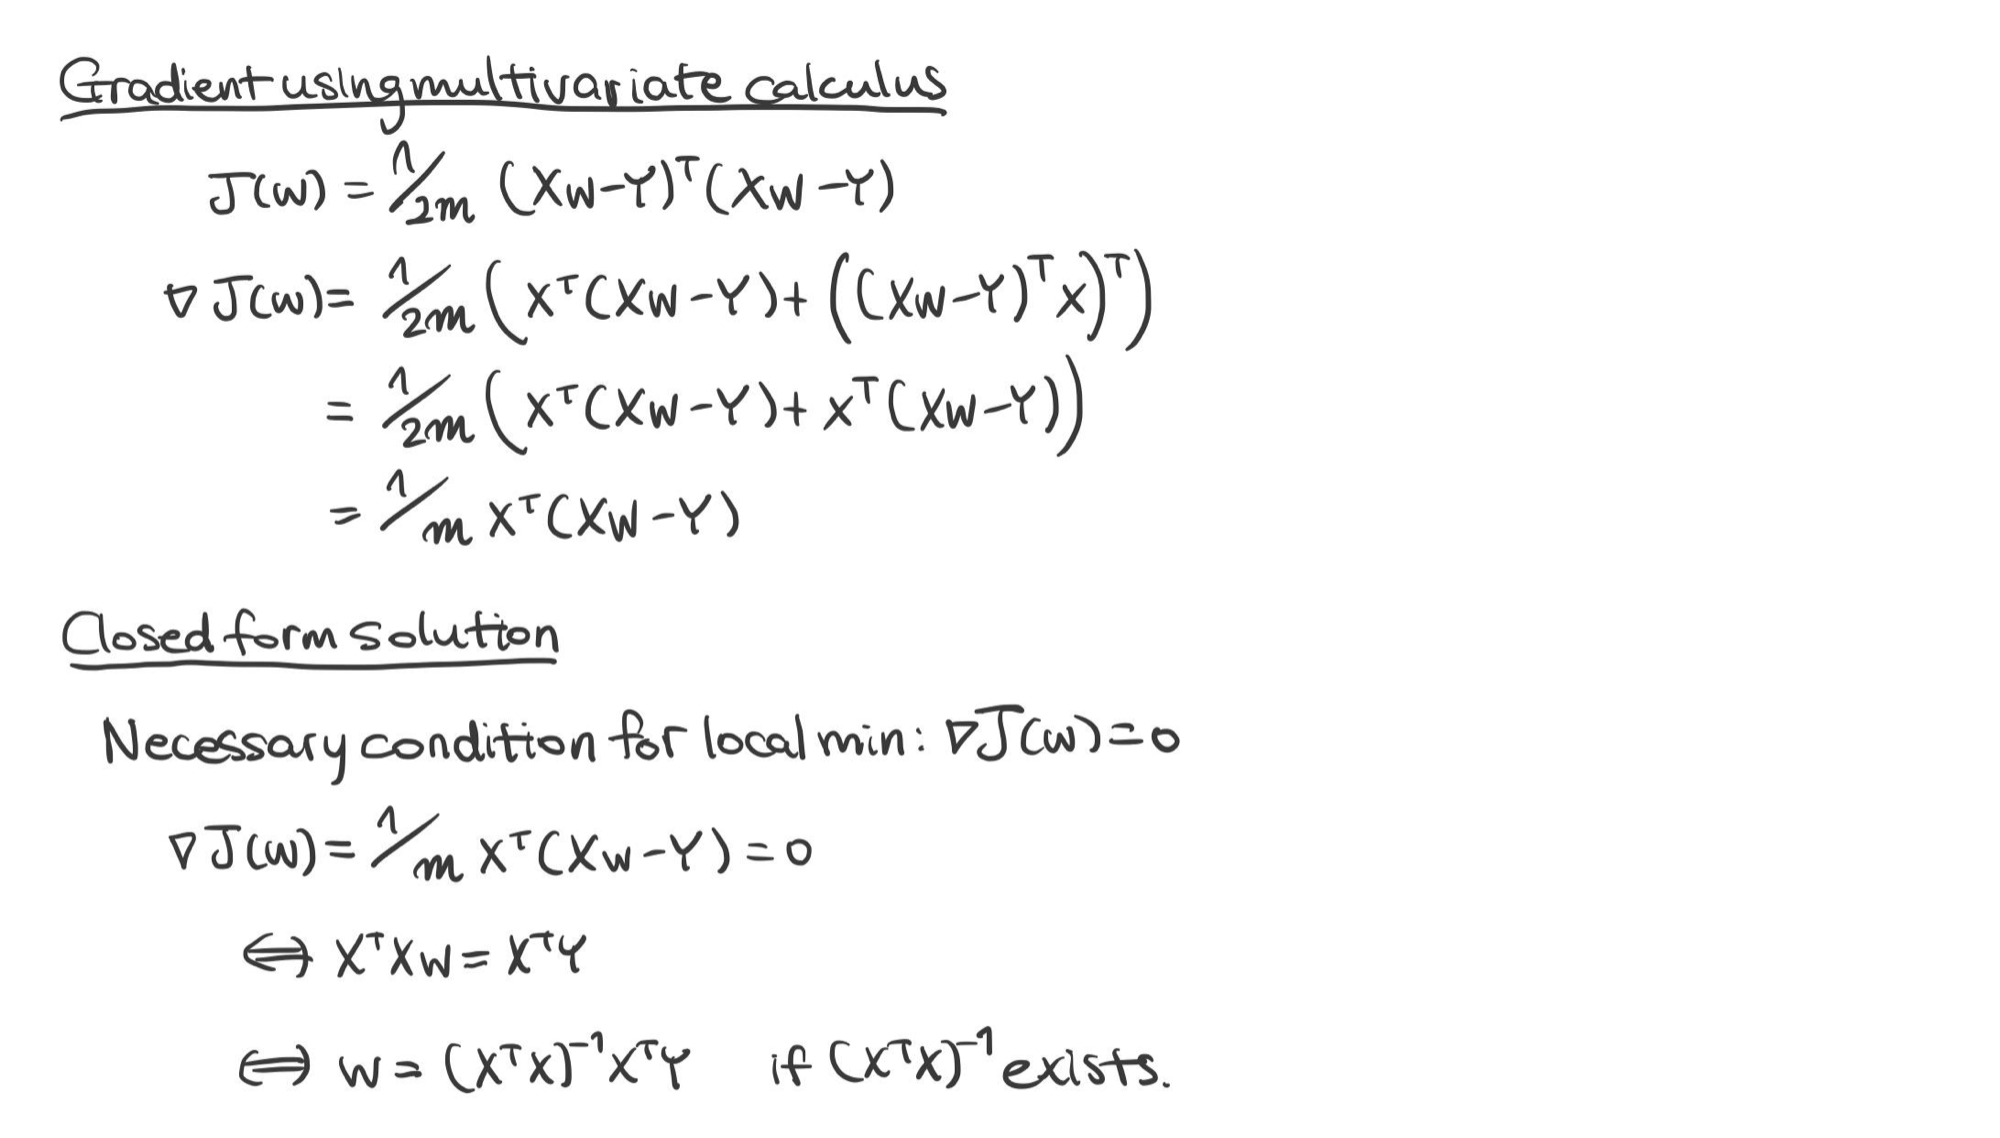 Gradient using multivariate calculus
J(w) = 1/2m (Xw-Y)ᵀ(Xw-Y)
∇J(w) = 1/2m (Xᵀ(Xw-Y) + ((Xw-Y)ᵀX)ᵀ)
= 1/2m (Xᵀ(Xw-Y) + Xᵀ(Xw-Y))
= 1/m Xᵀ(Xw-Y)
Closed form solution
Necessary condition for local min: ∇J(w) = 0
∇J(w) = 1/m Xᵀ(Xw-Y) = 0
⇔ XᵀXw = XᵀY
⇔ w = (XᵀX)⁻¹XᵀY if (XᵀX)⁻¹ exists.